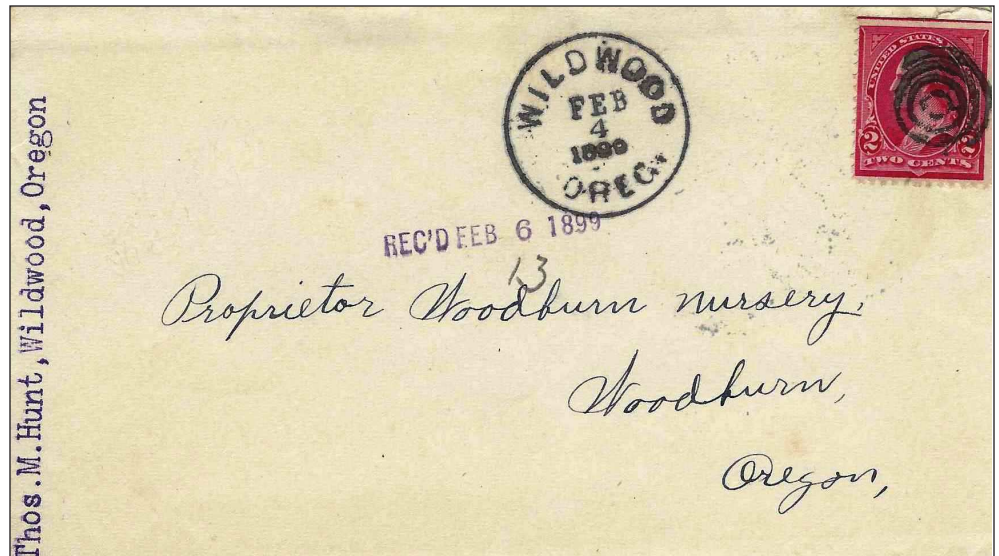 Thos.M.Hunt,Wildwood,Oregon
WILDWOOD
FEB
4
1899
OREG.
UNITED STATES
2 2
TWO CENTS
REC'D FEB 6 1899
13
Proprietor Woodburn nursery,
Woodburn,
Oregon,